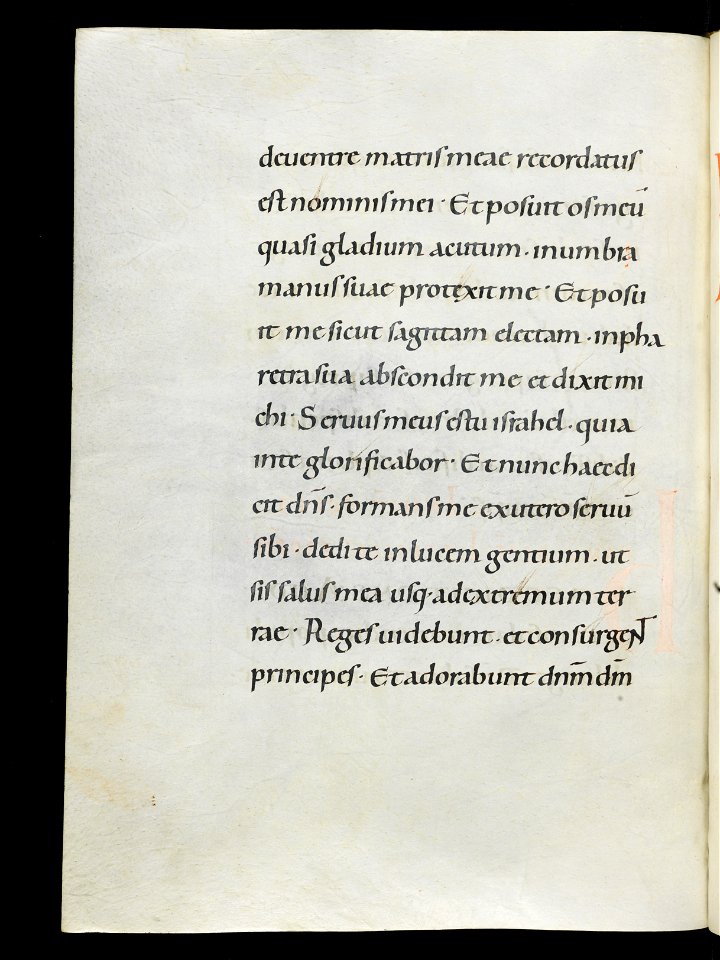 deuentre matris meae recordatus
est nominis mei · Et posuit os meū
quasi gladium acutum · inumbra
manus suae protexit me · Et posu
it me sicut sagittam electam · inpha
retra sua abscondit me et dixit mi
chi · Seruus meus es tu israhel · quia
inte glorificabor · Et nunc haec di
cit dn̄s · formans me exutero seruū
sibi · dedi te inlucem gentium · ut
sis salus mea usq· adextremum ter
rae · Reges uidebunt · et consurgenT
principes · Et adorabunt dnm̄ dm̄